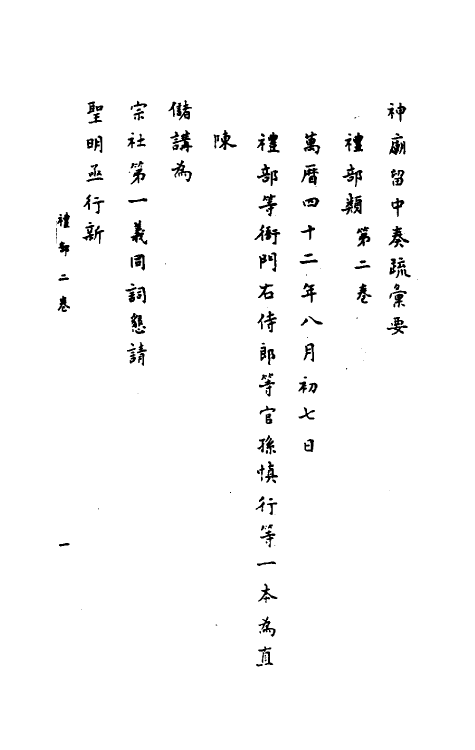 神廟留中奏疏彙要
禮部類第二卷
萬曆四十二年八月初七日
禮部等衙門右侍郎等官孫慎行等一本為直
陳
儲講為
宗社第一義同詞懇請
聖明亟行新
禮部二卷
一